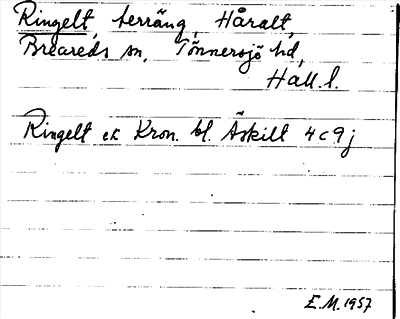 Ringelt, terräng, Håralt,
Breareds sn, Tönnersjö hd,
Hall. l.
Ringelt ek Kron. bl. Äskilt 4c9j
E.M. 1957